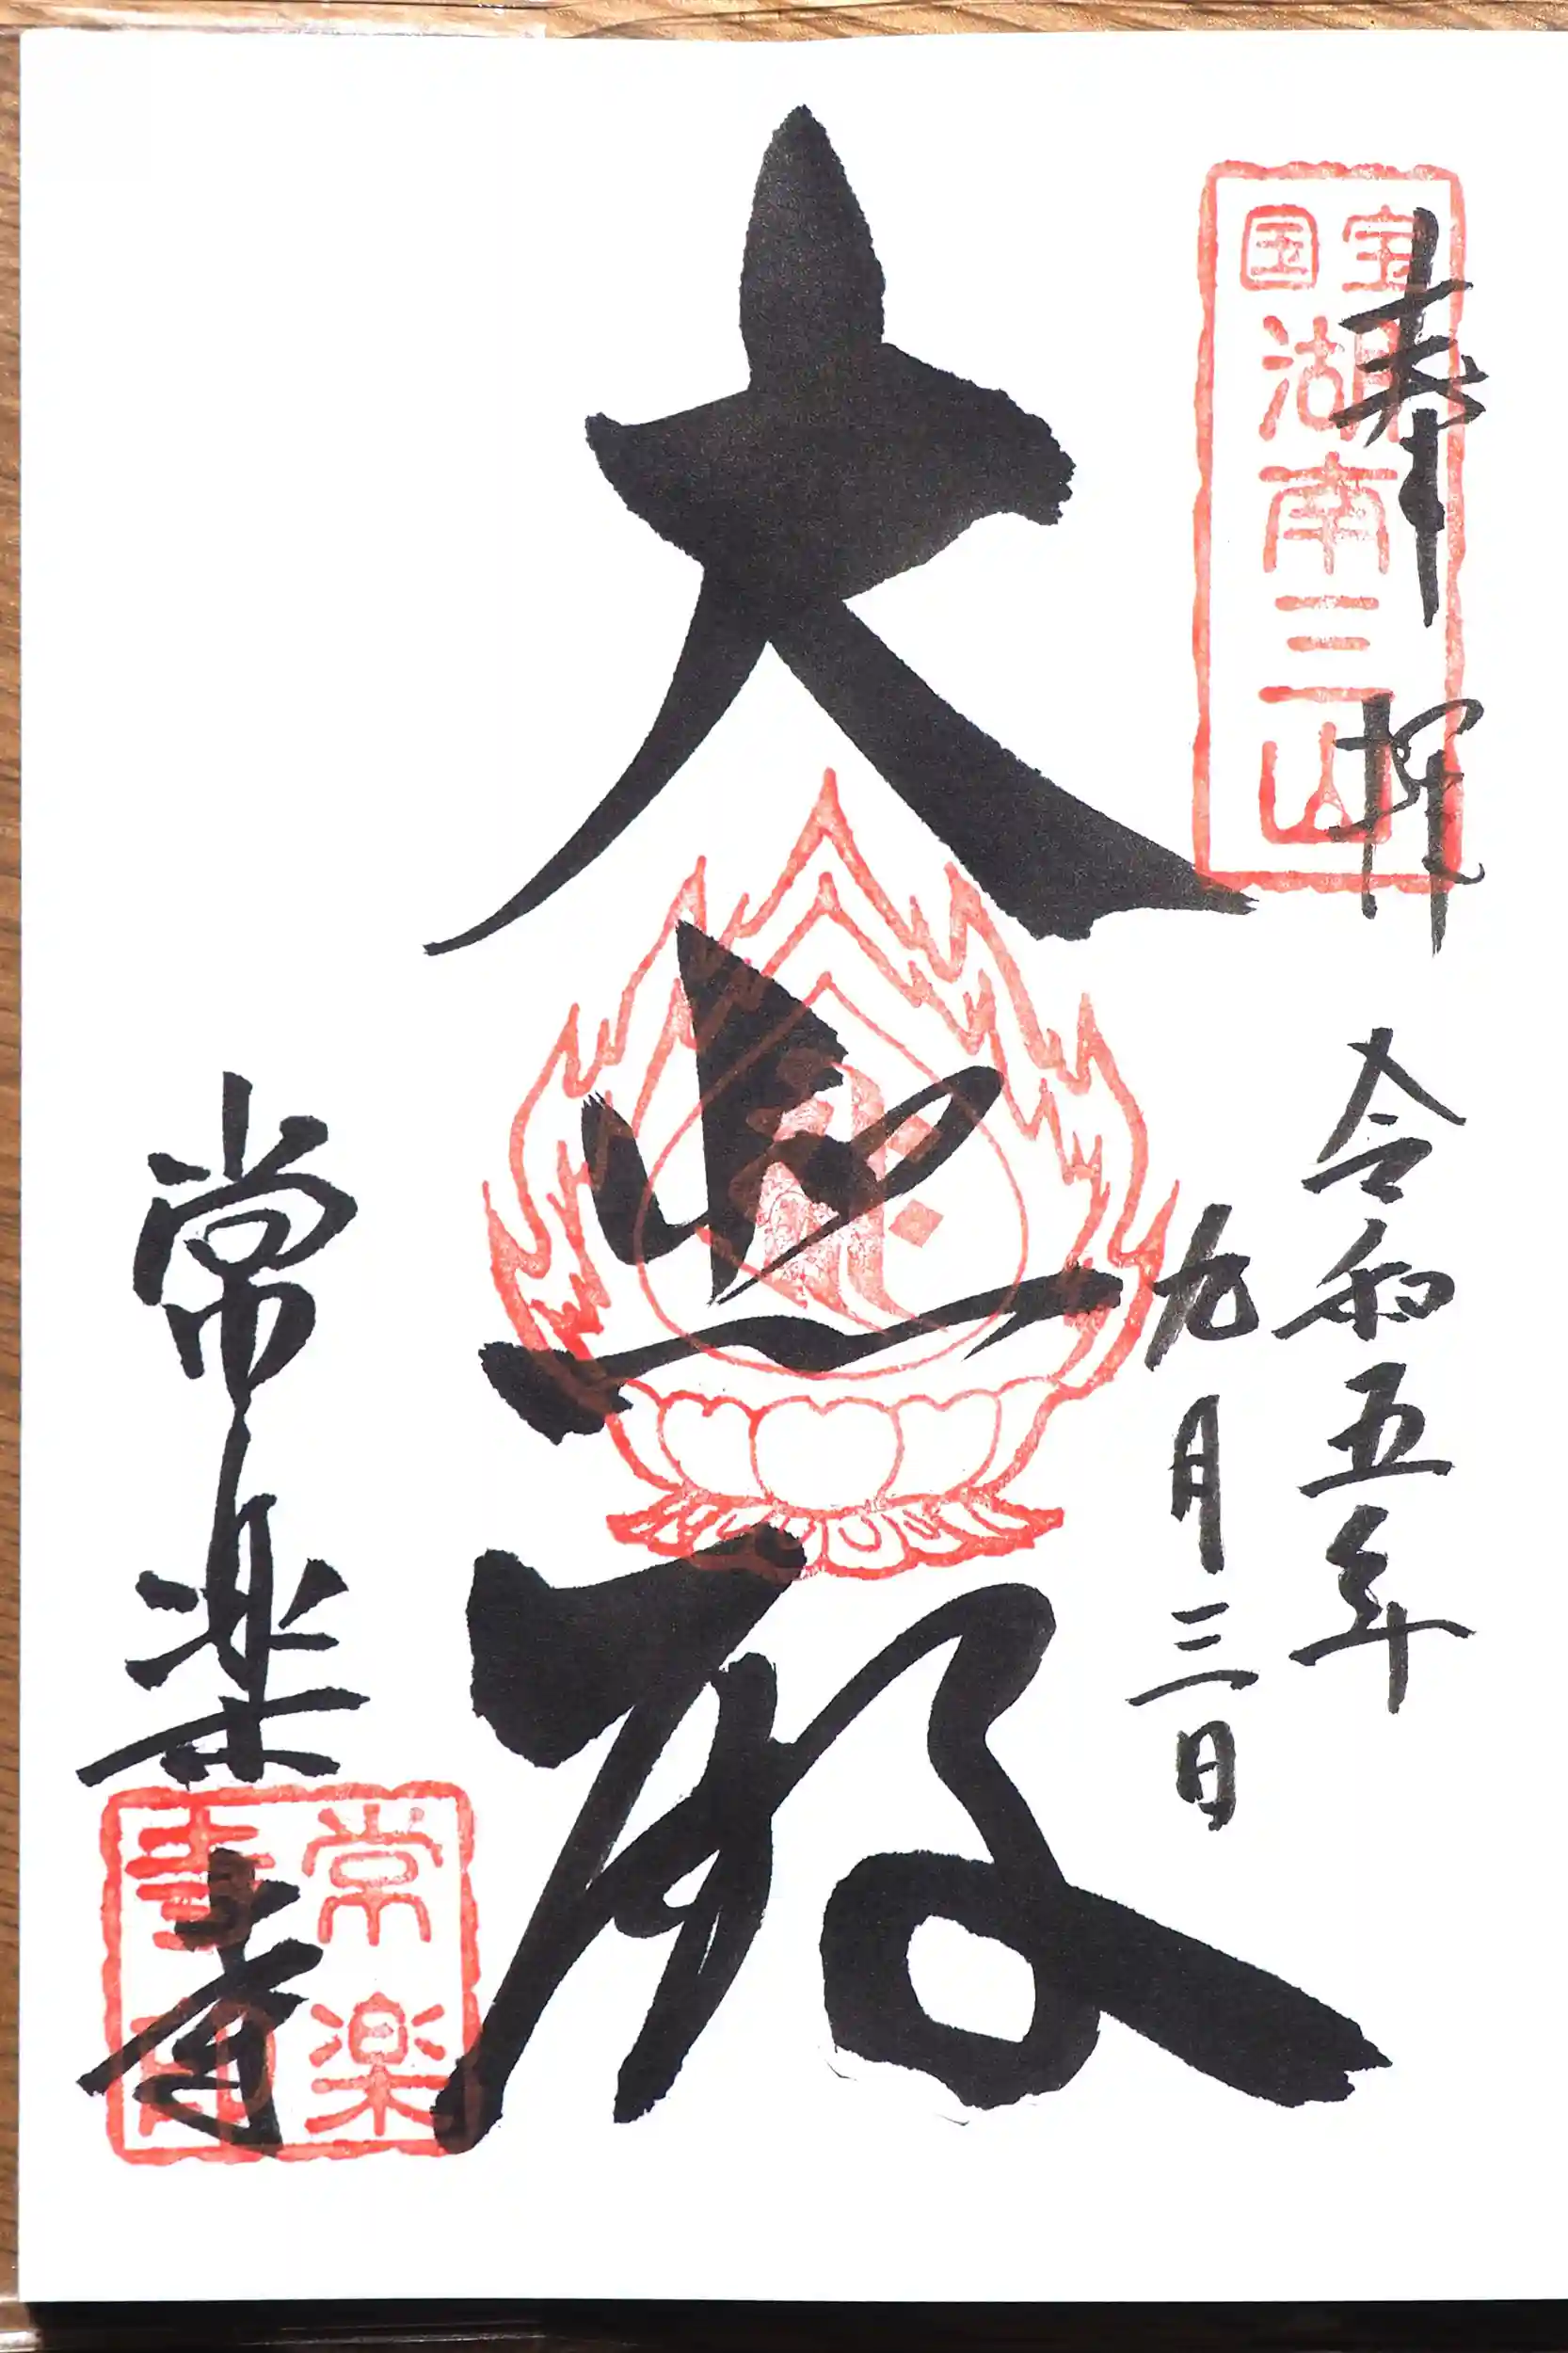 奉拝
国宝
湖南三山
令和五年
九月三日
大悲殿
常楽寺
常楽
寺印